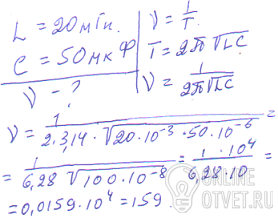 L = 20 мГн.
C = 50 мкФ
ν - ?
ν = 1/T
T = 2π√LC
ν = 1/(2π√LC)
ν = 1/(2·3,14·√(20·10⁻³·50·10⁻⁶)) =
= 1/(6,28√(100·10⁻⁸)) = (1·10⁴)/(6,28·10) =
= 0,0159·10⁴ = 159
ONLINE
OTVET.RU